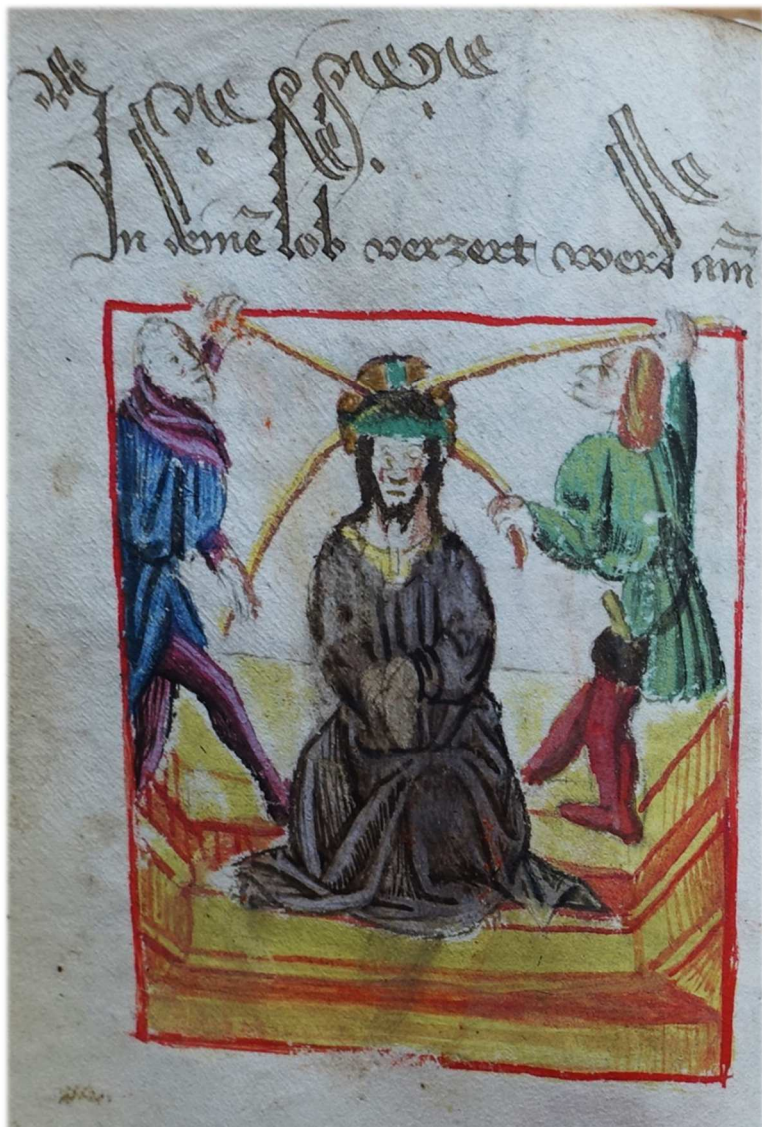 In demē lob verzert werd am̄